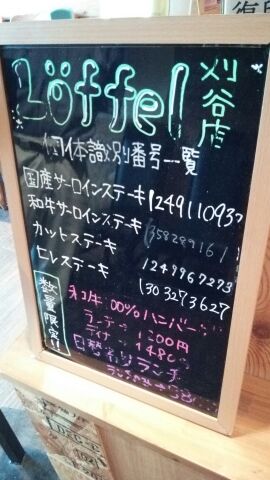 Löffel 刈谷店
個体識別番号一覧
国産サーロインステーキ 1249110937
和牛サーロインステーキ 358289161
カットステーキ 1249967273
ヒレステーキ 1303273627
数量限定!!
和牛100%ハンバーグ
ランチ→1,200円
ディナー→1480
日替わりランチ